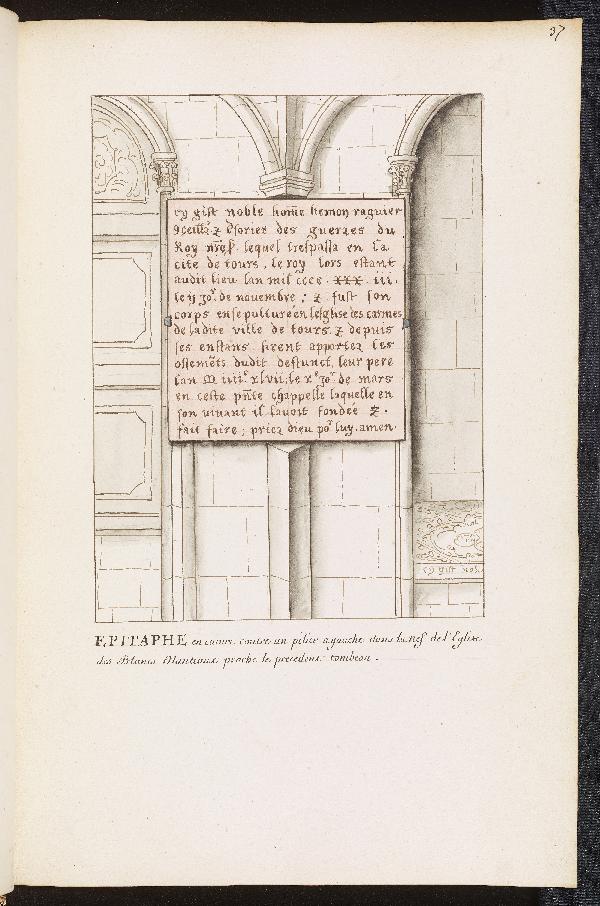 37
cy gist noble home hemon raguier
9ceill. z tsorier des guerres du
Roy nre s. lequel trespassa en la
cite de tours, le roy lors estant
audit lieu lan mil cccc XXX iii.
le ij jor. de novembre ; z fust son
corps ensepulture en leglise des carmes
de ladite ville de tours. z depuis
ses enffans firent apporter les
ossemets dudit deffunct, leur pere
lan M iiiic xlvii. le xe jor de mars
en ceste pnte chappelle laquelle en
son vivant il lavoit fondée z.
fait faire ; priez dieu por luy. amen.
cy gist nob
EPITAPHE en cuivre contre un pilier a gauche dans la nef de l'Eglise
des Blancs Manteaux proche le precedent tombeau.